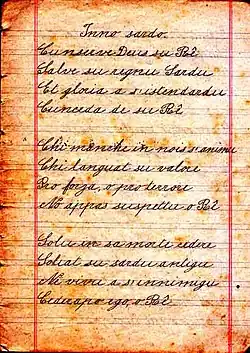 Inno sardo.
Cunserve Deus su Rè
Salve su regnu Sardu
Et gloria a s'istendardu
Cunceda de su Rè
Chi manche in nois s'animu
Chi languat su valore
Pro forza, o pro terrore
No appas suspettu o Rè
Solu in sa morte cedere
Soliat su sardu antigu
Ne vivu a s'innimigu
Cedcrapo ego, o Rè